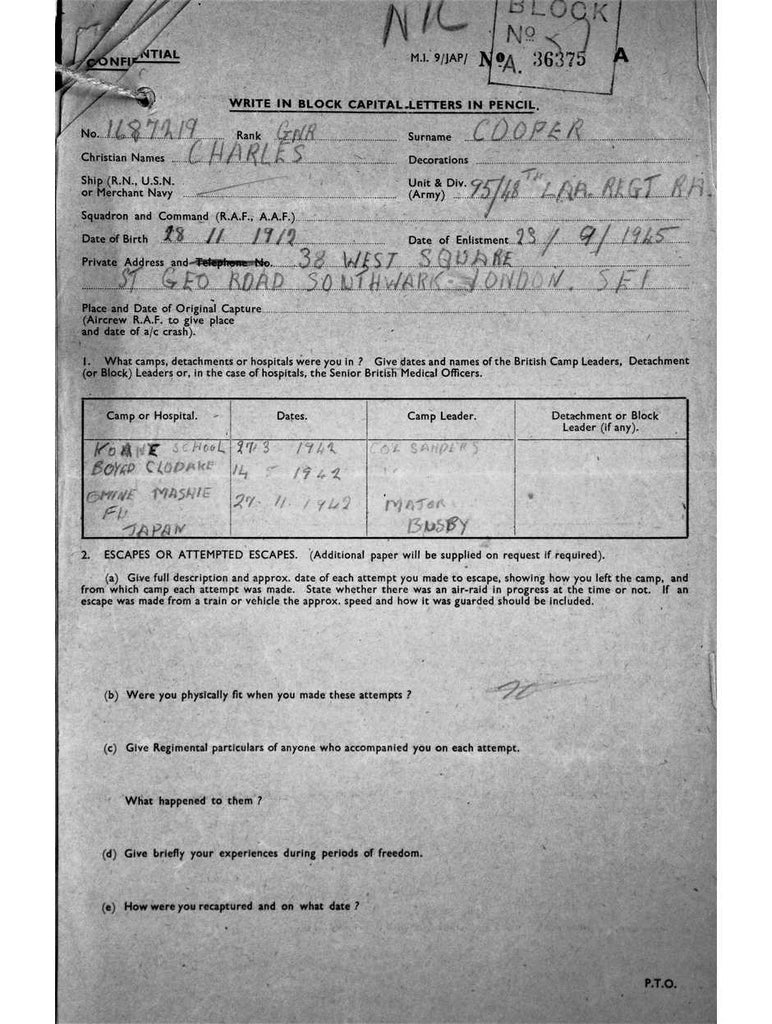 NIL
BLOCK
No 5
CONFIDENTIAL
M.I. 9/JAP/ No. A. 36375 A
WRITE IN BLOCK CAPITAL LETTERS IN PENCIL.
No. 1687219 Rank GNR Surname COOPER
Christian Names CHARLES Decorations
Ship (R.N., U.S.N. or Merchant Navy
Unit & Div. (Army) 95/48TH LAA. REGT RA.
Squadron and Command (R.A.F., A.A.F.)
Date of Birth 28 11 1912 Date of Enlistment 23/9/1945
Private Address and Telephone No. 38 WEST SQUARE
ST GEO ROAD SOUTHWARK LONDON. SE1
Place and Date of Original Capture
(Aircrew R.A.F. to give place
and date of a/c crash).
1. What camps, detachments or hospitals were you in ? Give dates and names of the British Camp Leaders, Detachment
(or Block) Leaders or, in the case of hospitals, the Senior British Medical Officers.
Camp or Hospital. Dates. Camp Leader. Detachment or Block
Leader (if any).
KOANE SCHOOL 27 3 1942 COL SANDERS
BOYRD CLODAKE 14 5 1942 "
OMINE MASHIE 27-11-1942 MAJOR
FU
JAPAN BUSBY
2. ESCAPES OR ATTEMPTED ESCAPES. (Additional paper will be supplied on request if required).
(a) Give full description and approx. date of each attempt you made to escape, showing how you left the camp, and
from which camp each attempt was made. State whether there was an air-raid in progress at the time or not. If an
escape was made from a train or vehicle the approx. speed and how it was guarded should be included.
(b) Were you physically fit when you made these attempts ? No
(c) Give Regimental particulars of anyone who accompanied you on each attempt.
What happened to them ?
(d) Give briefly your experiences during periods of freedom.
(e) How were you recaptured and on what date ?
P.T.O.